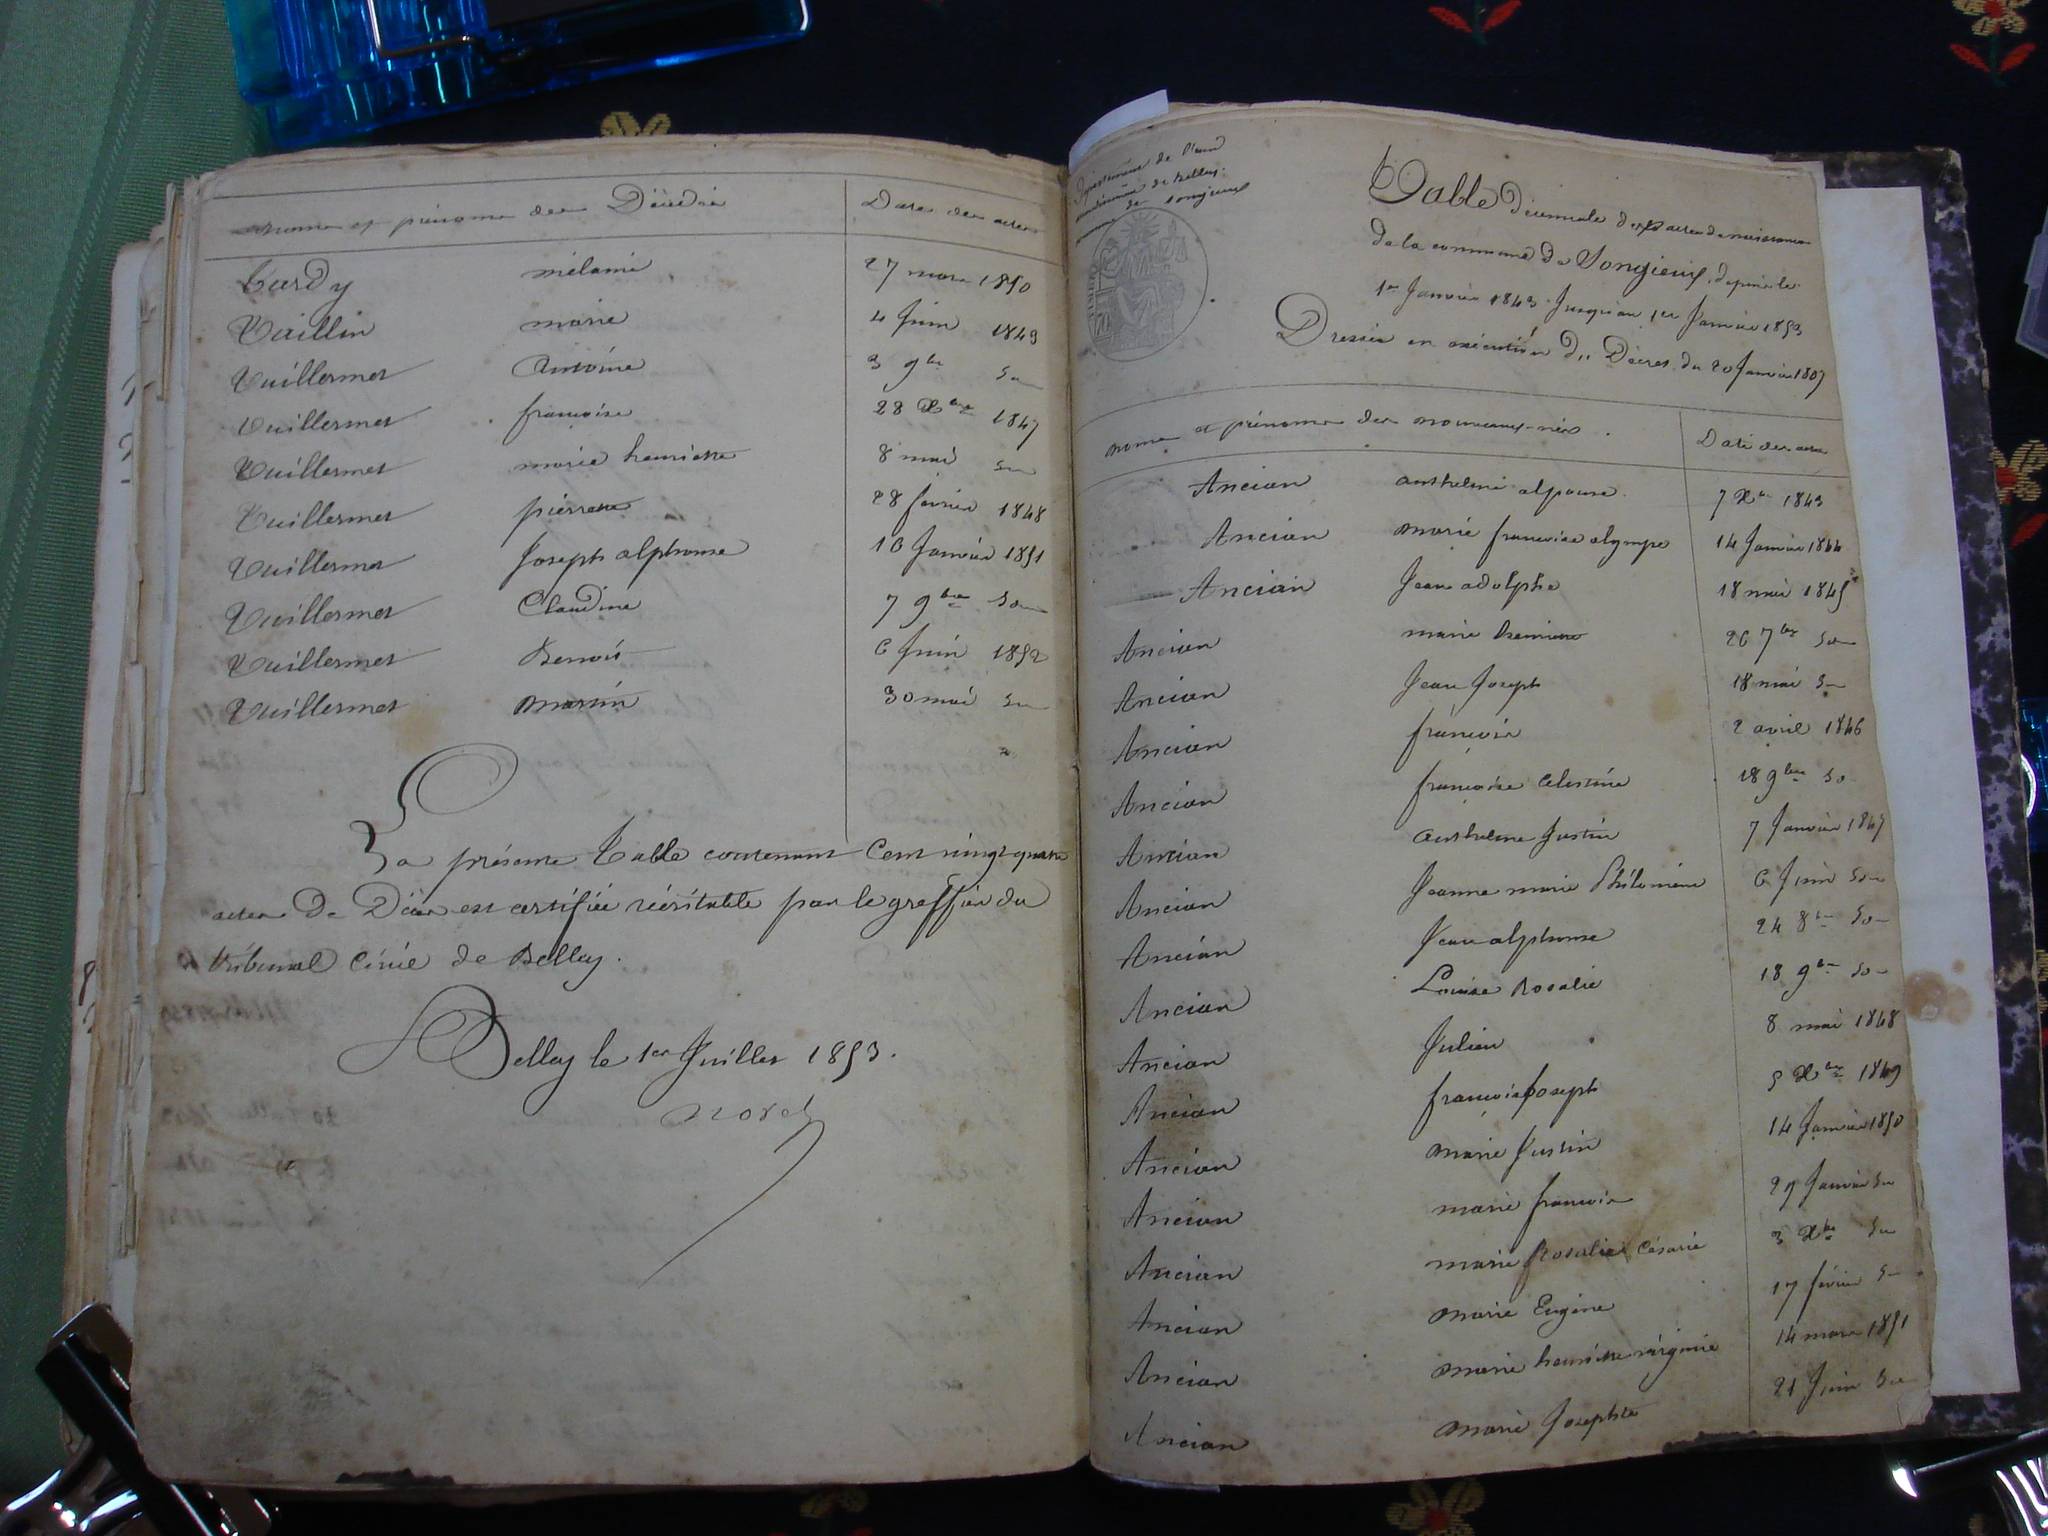 noms et prénoms des Décédés Date des actes
Tardy mélanie 27 mars 1850
Vuillin marie 4 Juin 1849
Vuillermet Antoine 3 9bre do
Vuillermet françoise 28 Xbre 1847
Vuillermet marie henriette 8 mai do
Vuillermet pierrette 28 février 1848
Vuillermet Joseph alphonse 10 Janvier 1851
Vuillermet Claudine 7 9bre do
Vuillermet Benoit 6 Juin 1852
Vuillermet martin 30 mai do
La présente Table contenant Cent vingt quatre
actes de Décès est certifiée véritable par le greffier du
tribunal Civil de Belley.
Belley le 1er Juillet 1853.
Département de l'ain
arrondissement de Belley.
commune de Songieux
Table Décennale des actes de naissances
de la commune de Songieux, depuis le
1er Janvier 1843 Jusqu'au 1er Janvier 1853
Dressée en exécution du Décret du 20 Janvier 1807
noms et prénoms des nouveaux-nés. Date des actes
Ancian anthelme alponse 7 Xbre 1843
Ancian marie françoise olympe 14 Janvier 1844
Ancian Jean adolphe 18 mai 1845
Ancian marie 26 7bre do
Ancian Jean Joseph 18 mai do
Ancian françois 2 avril 1846
Ancian françoise Celestine 18 9bre do
Ancian anthelme Justin 7 Janvier 1847
Ancian Jeanne marie Philomène 6 Juin do
Ancian Jean alphonse 24 8bre do
Ancian Louise Rosalie 18 9bre do
Ancian Julien 8 mai 1848
Ancian françois Joseph 5 Xbre 1849
Ancian marie Justin 14 Janvier 1850
Ancian marie françois 29 Janvier do
Ancian marie Rosalie Césarie 3 Xbre do
Ancian marie Eugène 17 février do
Ancian marie henriette virginie 14 mars 1851
Ancian marie Josephte 21 Juin do